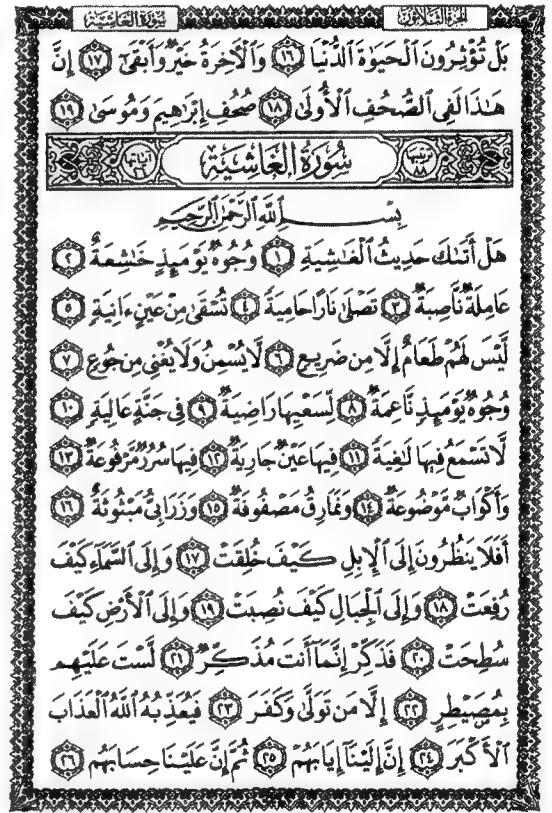 الجزء الثلاثون سورة الغاشية
بَلْ تُؤْثِرُونَ الْحَيَوٰةَ الدُّنْيَا ١٦ وَالْآخِرَةُ خَيْرٌ وَأَبْقَىٰ ١٧ إِنَّ
هَٰذَا لَفِي الصُّحُفِ الْأُولَىٰ ١٨ صُحُفِ إِبْرَاهِيمَ وَمُوسَىٰ ١٩
ترتيبها ٨٨ سُورَةُ الْغَاشِيَةِ آياتها ٢٦
بِسْمِ اللَّهِ الرَّحْمَٰنِ الرَّحِيمِ
هَلْ أَتَىٰكَ حَدِيثُ الْغَٰشِيَةِ ١ وُجُوهٌ يَوْمَئِذٍ خَٰشِعَةٌ ٢
عَامِلَةٌ نَّاصِبَةٌ ٣ تَصْلَىٰ نَارًا حَامِيَةً ٤ تُسْقَىٰ مِنْ عَيْنٍ ءَانِيَةٍ ٥
لَّيْسَ لَهُمْ طَعَامٌ إِلَّا مِن ضَرِيعٍ ٦ لَّا يُسْمِنُ وَلَا يُغْنِي مِن جُوعٍ ٧
وُجُوهٌ يَوْمَئِذٍ نَّاعِمَةٌ ٨ لِّسَعْيِهَا رَاضِيَةٌ ٩ فِي جَنَّةٍ عَالِيَةٍ ١٠
لَّا تَسْمَعُ فِيهَا لَٰغِيَةً ١١ فِيهَا عَيْنٌ جَارِيَةٌ ١٢ فِيهَا سُرُرٌ مَّرْفُوعَةٌ ١٣
وَأَكْوَابٌ مَّوْضُوعَةٌ ١٤ وَنَمَارِقُ مَصْفُوفَةٌ ١٥ وَزَرَابِيُّ مَبْثُوثَةٌ ١٦
أَفَلَا يَنظُرُونَ إِلَى الْإِبِلِ كَيْفَ خُلِقَتْ ١٧ وَإِلَى السَّمَاءِ كَيْفَ
رُفِعَتْ ١٨ وَإِلَى الْجِبَالِ كَيْفَ نُصِبَتْ ١٩ وَإِلَى الْأَرْضِ كَيْفَ
سُطِحَتْ ٢٠ فَذَكِّرْ إِنَّمَا أَنتَ مُذَكِّرٌ ٢١ لَّسْتَ عَلَيْهِم
بِمُصَيْطِرٍ ٢٢ إِلَّا مَن تَوَلَّىٰ وَكَفَرَ ٢٣ فَيُعَذِّبُهُ اللَّهُ الْعَذَابَ
الْأَكْبَرَ ٢٤ إِنَّ إِلَيْنَا إِيَابَهُمْ ٢٥ ثُمَّ إِنَّ عَلَيْنَا حِسَابَهُم ٢٦